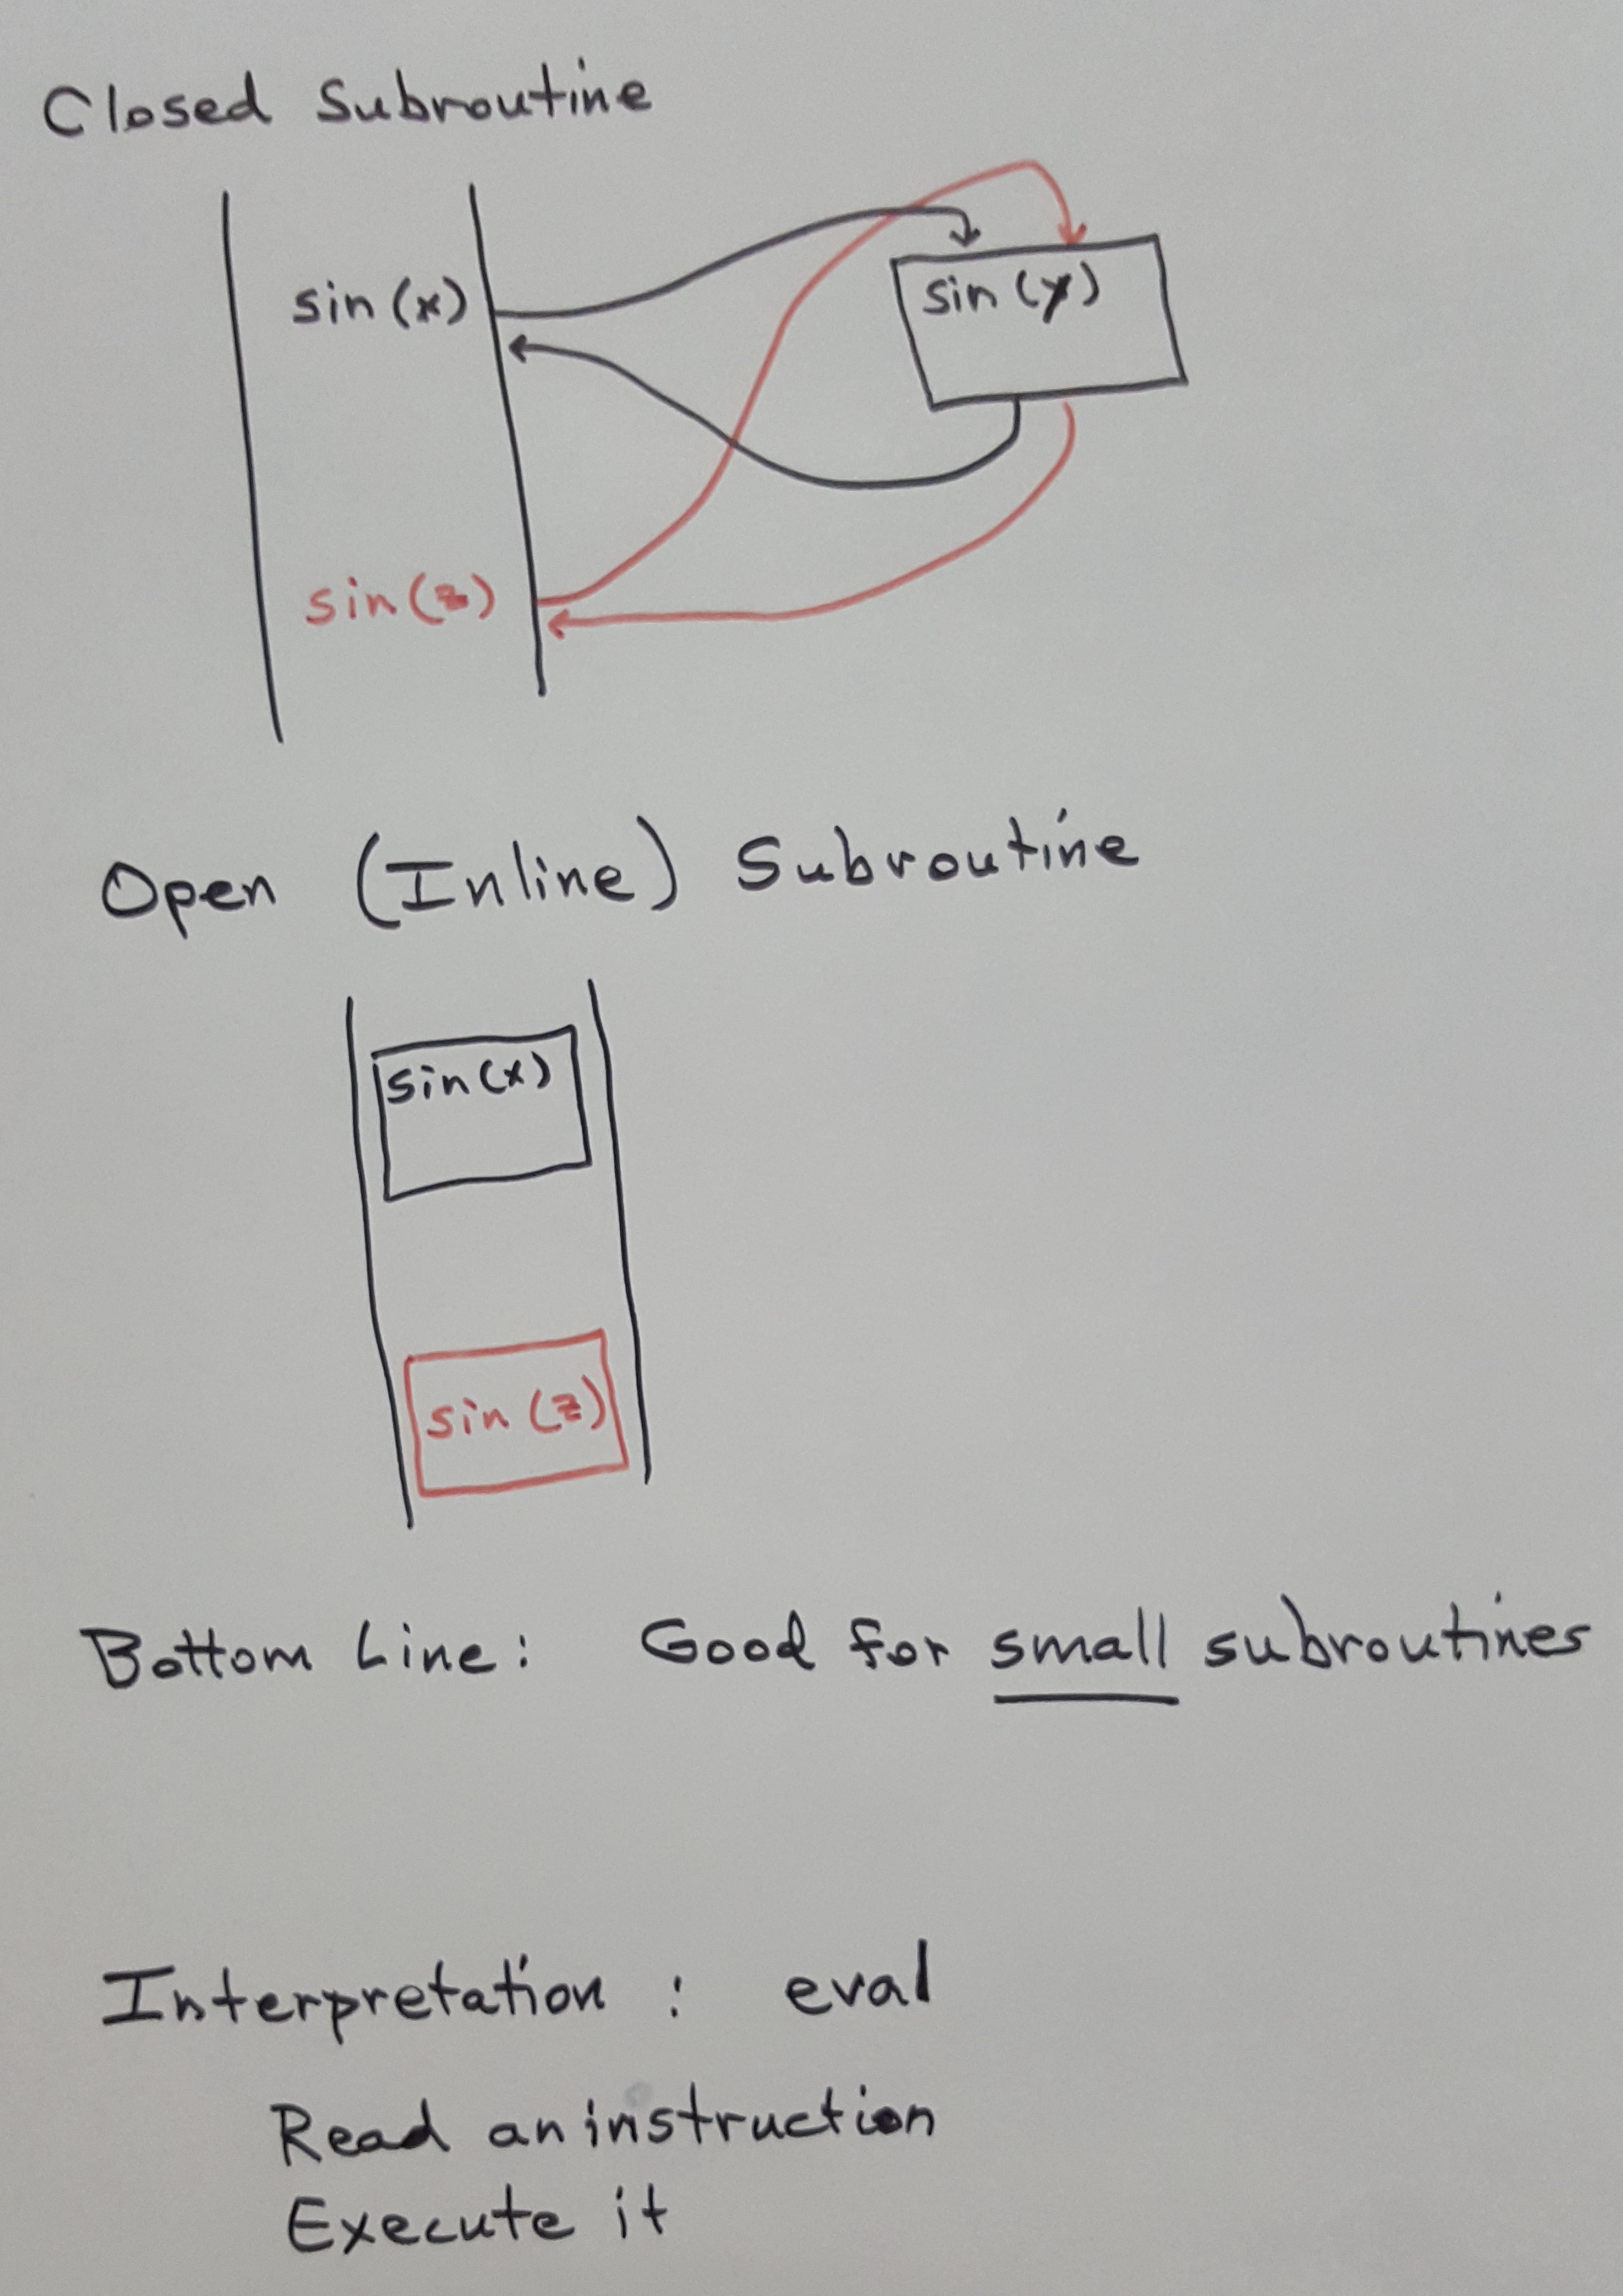 Closed Subroutine
sin (x)
sin (y)
sin (z)
Open (Inline) Subroutine
sin (x)
sin (z)
Bottom Line: Good for small subroutines
Interpretation : eval
Read an instruction
Execute it